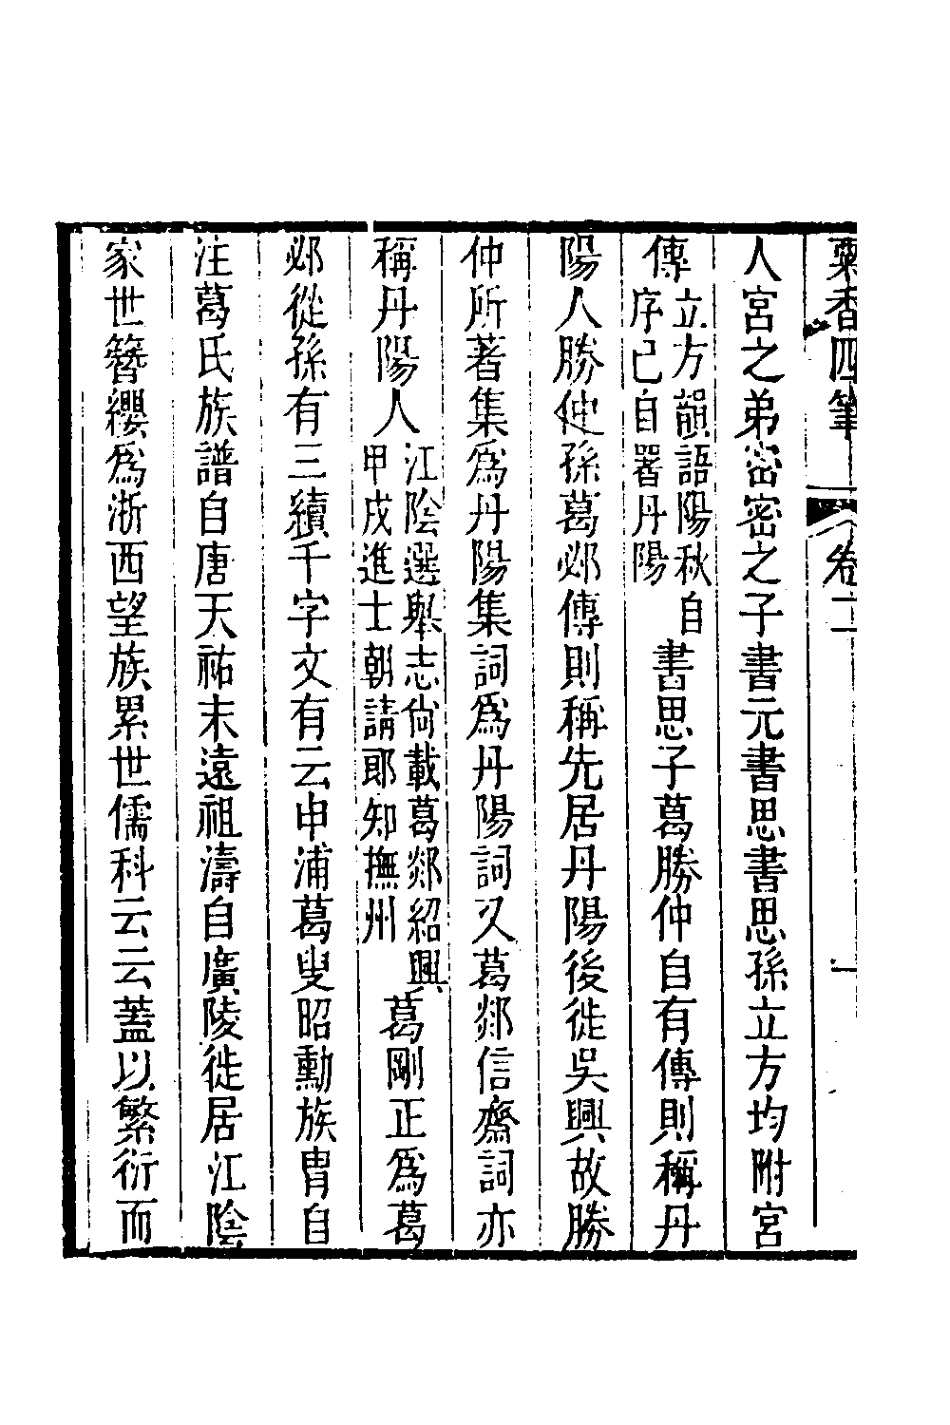 粟香四筆 卷二 一
人宮之弟密密之子書元書思書思孫立方均附宮
傳立方韻語陽秋自序已自署丹陽書思子葛勝仲自有傳則稱丹
陽人勝仲孫葛邲傳則稱先居丹陽後徙吳興故勝
仲所著集爲丹陽集詞爲丹陽詞又葛郯信齋詞亦
稱丹陽人江陰選舉志尙載葛郯紹興甲戌進士朝請郎知撫州葛剛正爲葛
邲從孫有三續千字文有云申浦葛叟昭勳族胄自
注葛氏族譜自唐天祐末遠祖濤自廣陵徙居江陰
家世簪纓爲浙西望族累世儒科云云蓋以繁衍而